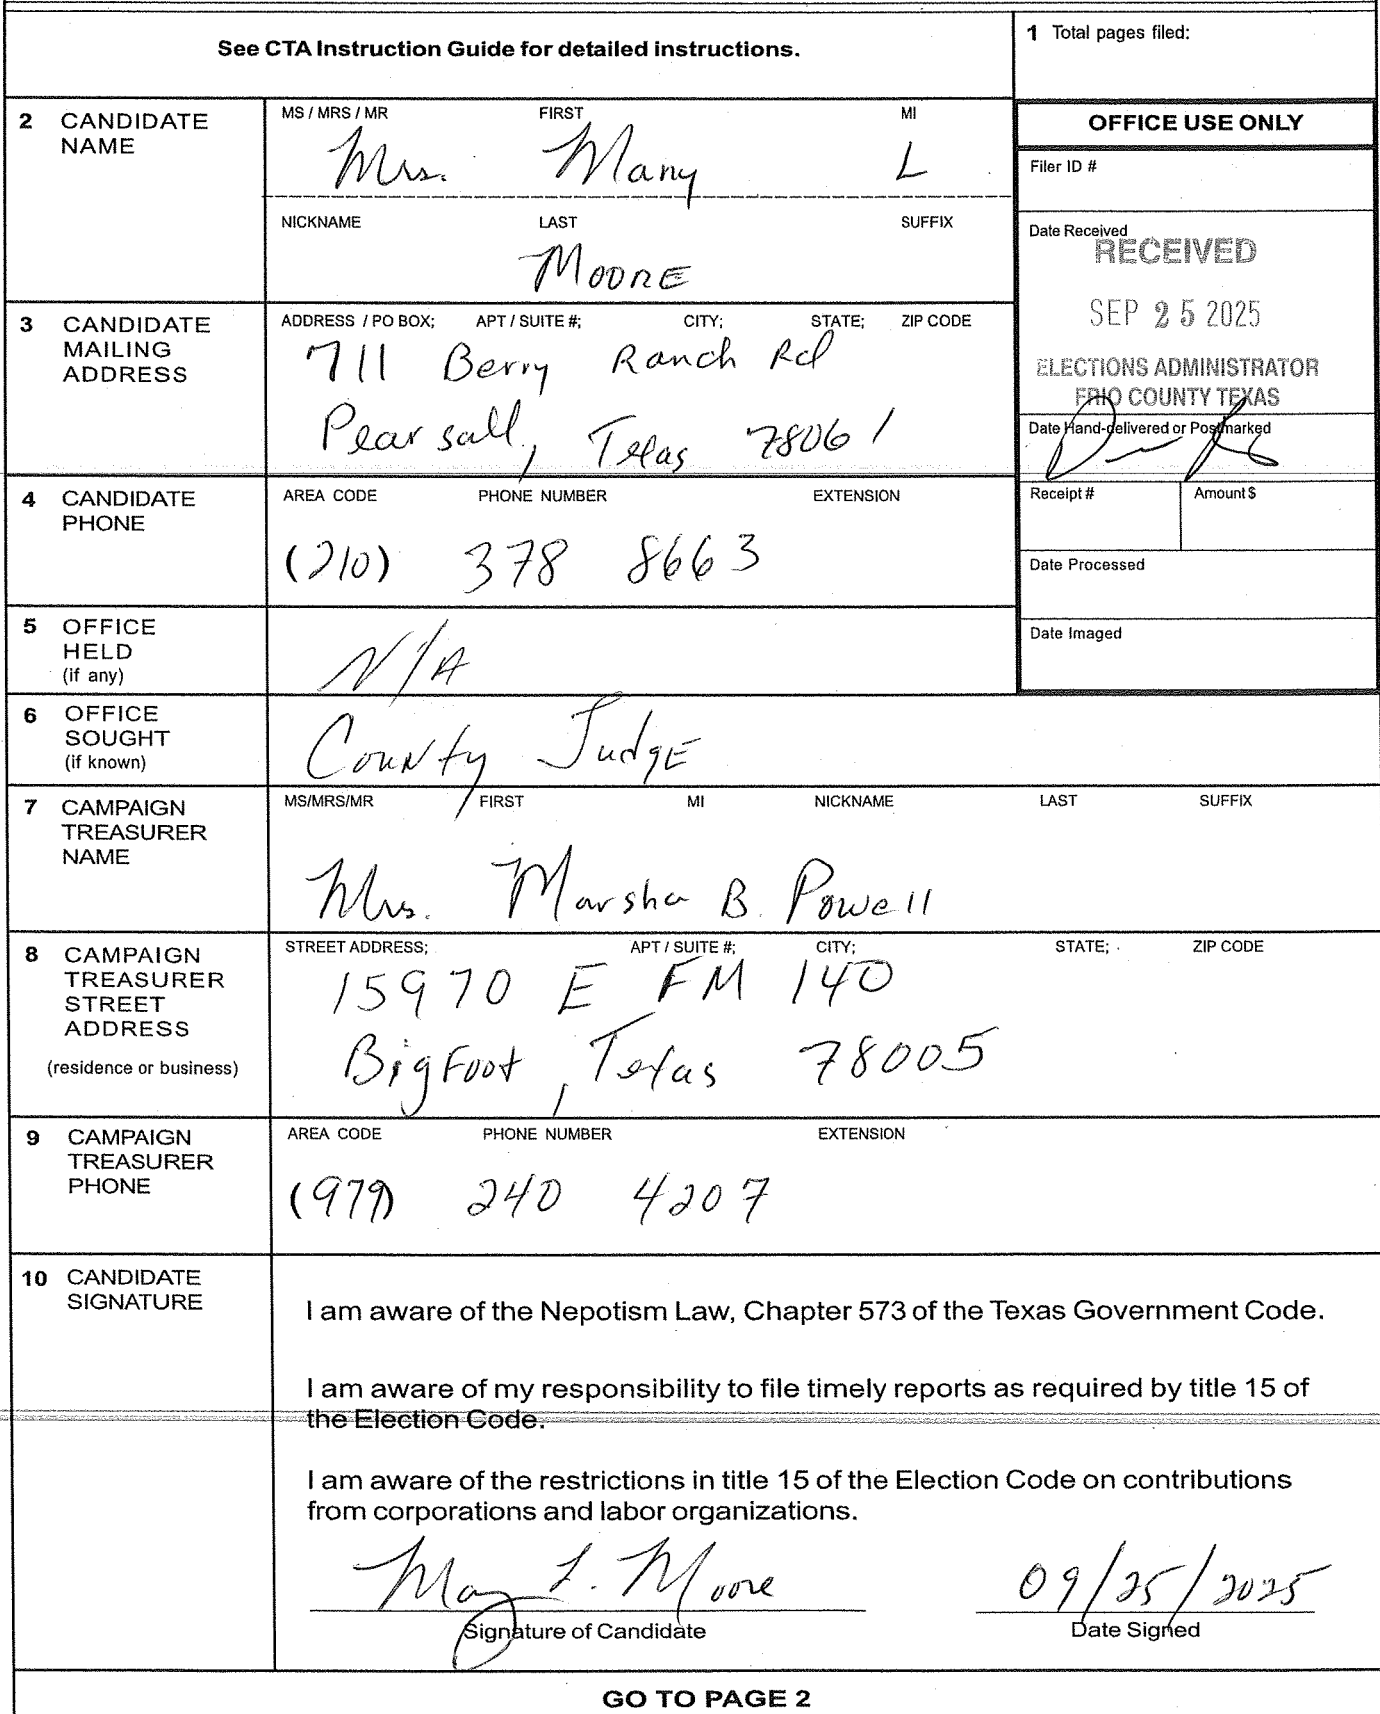 See CTA Instruction Guide for detailed instructions.
1 Total pages filed:
2 CANDIDATE NAME
MS / MRS / MR FIRST MI
Mrs. Mary L
NICKNAME LAST SUFFIX
Moore
OFFICE USE ONLY
Filer ID #
Date Received
RECEIVED
SEP 25 2025
ELECTIONS ADMINISTRATOR
FRIO COUNTY TEXAS
Date Hand-delivered or Postmarked
Receipt # Amount $
Date Processed
Date Imaged
3 CANDIDATE MAILING ADDRESS
ADDRESS / PO BOX; APT / SUITE #; CITY; STATE; ZIP CODE
711 Berry Ranch Rd
Pearsall, Texas 78061
4 CANDIDATE PHONE
AREA CODE PHONE NUMBER EXTENSION
(210) 378 8663
5 OFFICE HELD (if any)
N/A
6 OFFICE SOUGHT (if known)
County Judge
7 CAMPAIGN TREASURER NAME
MS/MRS/MR FIRST MI NICKNAME LAST SUFFIX
Mrs. Marsha B. Powell
8 CAMPAIGN TREASURER STREET ADDRESS (residence or business)
STREET ADDRESS; APT / SUITE #; CITY; STATE; ZIP CODE
15970 E FM 140
Bigfoot, Texas 78005
9 CAMPAIGN TREASURER PHONE
AREA CODE PHONE NUMBER EXTENSION
(979) 240 4207
10 CANDIDATE SIGNATURE
I am aware of the Nepotism Law, Chapter 573 of the Texas Government Code.
I am aware of my responsibility to file timely reports as required by title 15 of
the Election Code.
I am aware of the restrictions in title 15 of the Election Code on contributions
from corporations and labor organizations.
Mary L. Moore 09/25/2025
Signature of Candidate Date Signed
GO TO PAGE 2